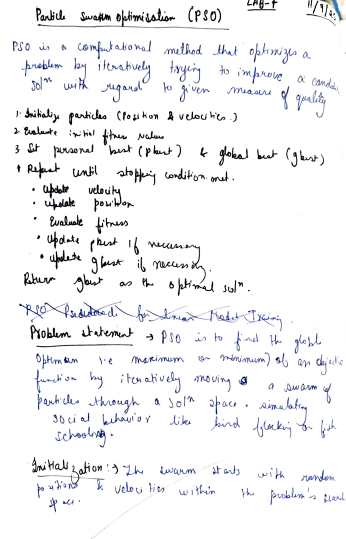 LAB-7
11/9/25
Particle swarm optimisation (PSO)
PSO is a computational method that optimizes a
problem by iteratively trying to improve a candi
soln with regard to given measure of quality
1. Initialize particles (Position & velocities.)
2. Evaluate initial fitness values
3 Set personal best (pbest) & global best (gbest)
4 Repeat until stopping condition met.
• update velocity
• update position
• Evaluate fitness
• update pbest if necessary
• update gbest if necessary.
Return gbest as the optimal soln.
PSO Pseudocode for Linear Model Training
Problem statement → PSO is to find the global
optimum i.e maximum or minimum) of an objective
function by iteratively moving a swarm of
particles through a soln space. simulating
social behavior like bird flocking or fish
schooling.
Initialization :→ The swarm starts with random
positions & velocities within the problem's search
space.